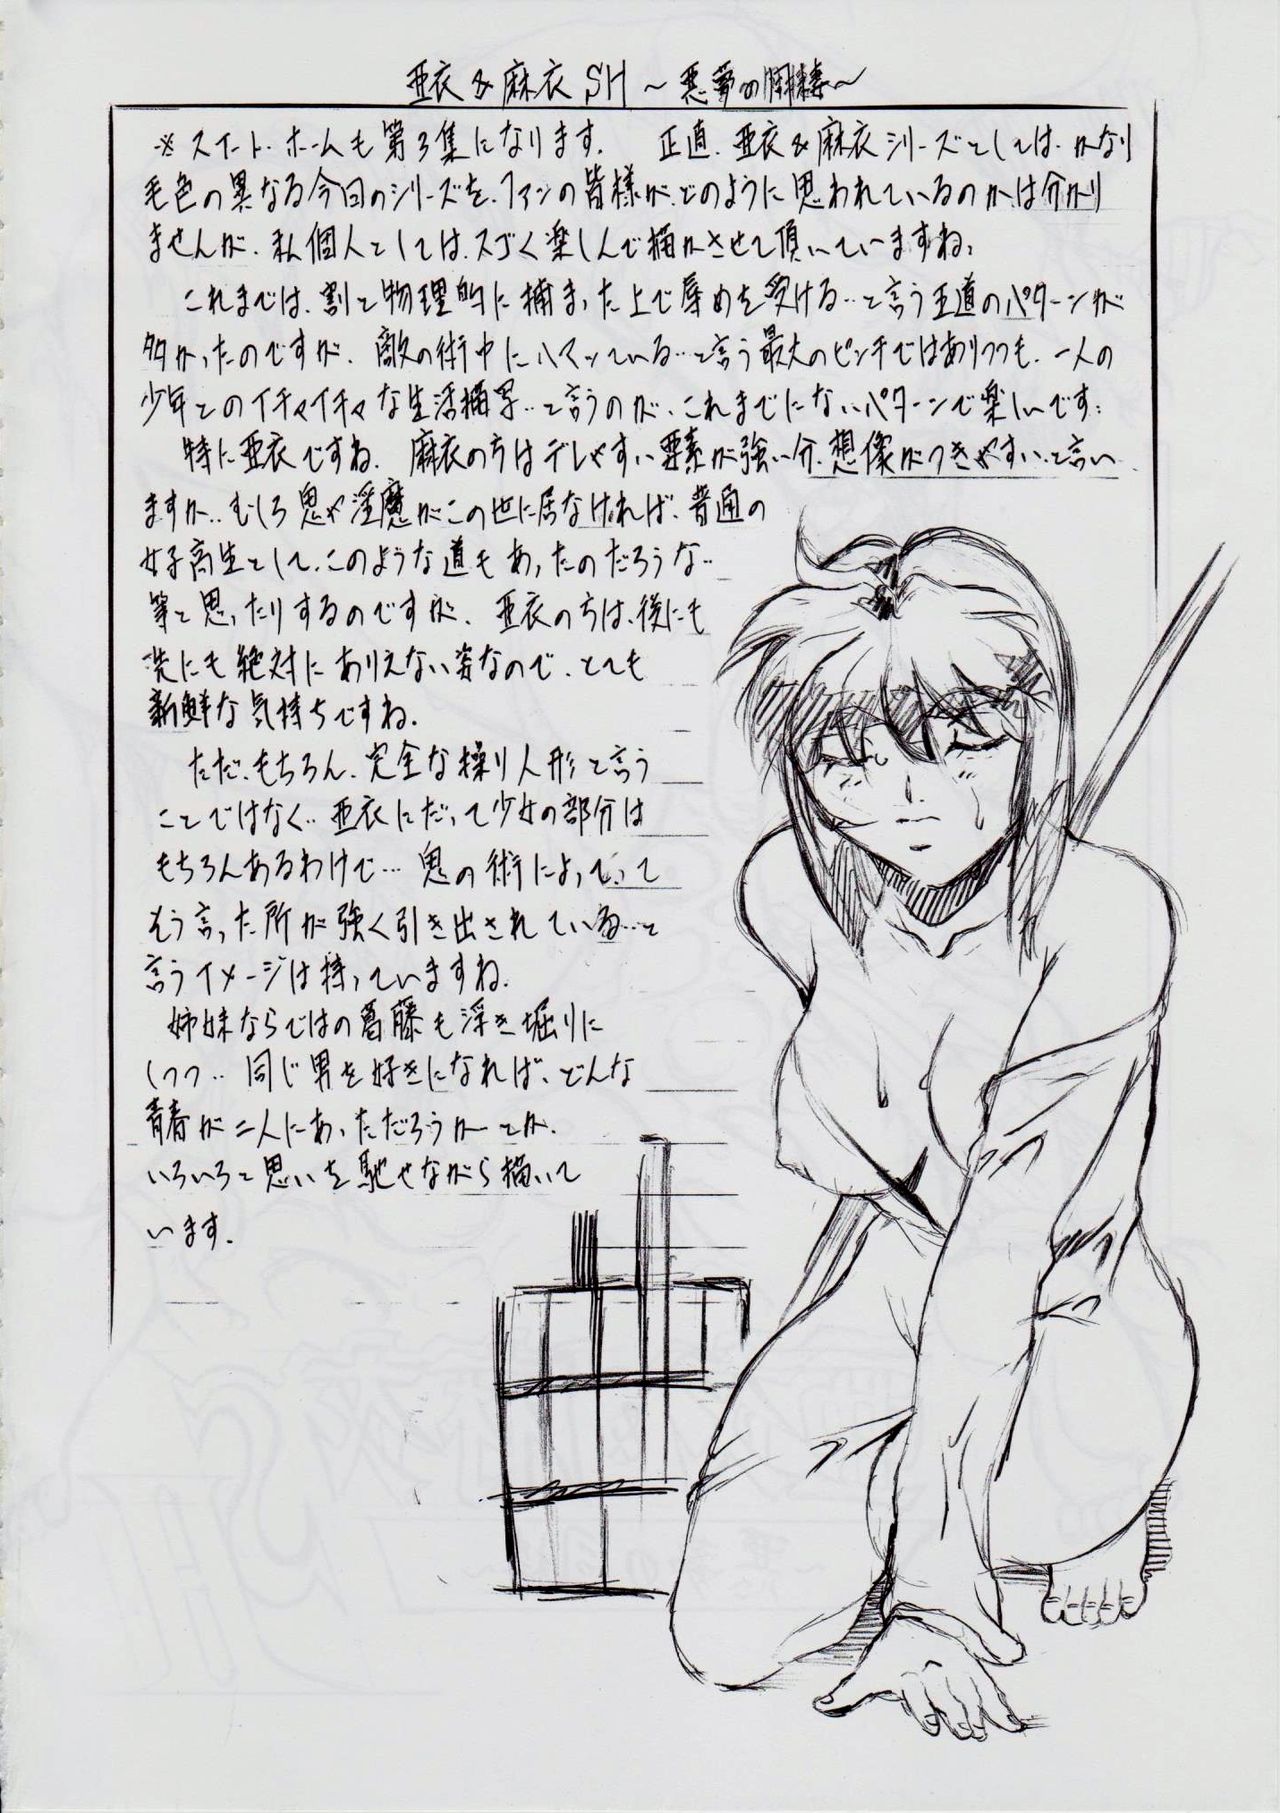 亜衣&麻衣SH~悪夢の開幕~
※スイート・ホームも第3集になります. 正直、亜衣&麻衣シリーズとしては、かなり
毛色の異なる今回のシリーズを、ファンの皆様が、どのように思われているのかは分かり
ませんが、私個人としては、スゴく楽しんで描かさせて頂いていますね、
これまでは、割と物理的に捕まった上で辱めを受ける‥と言う王道のパターンが
多かったのですが、敵の術中にハマッている‥と言う最大のピンチではありつつも、一人の
少年とのイチャイチャな生活描写‥と言うのが、これまでにないパターンで楽しいです:
特に亜衣ですね. 麻衣のちはデレやすい要素が強い分、想像がつきやすい‥と言い
ますか‥むしろ鬼や淫魔がこの世に居なければ、普通の
女子高生として、このような道もあったのだろうな‥
等と思ったりするのですが、亜衣のちは、後にも
先にも絶対にありえない姿なので、とても
新鮮な気持ちですね.
ただ、もちろん、完全な操り人形と言う
ことではなく‥亜衣にだって少女の部分は
もちろんあるわけで…鬼の術によっていって
もう言った所が強く引き出されている‥と
言うイメージは持っていますね.
姉妹ならではの葛藤も浮き堀りに
しつつ‥同じ男を好きになれば、どんな
青春が二人にあっただろうかーとか、
いろいろと思いを馳せながら描いて
います.